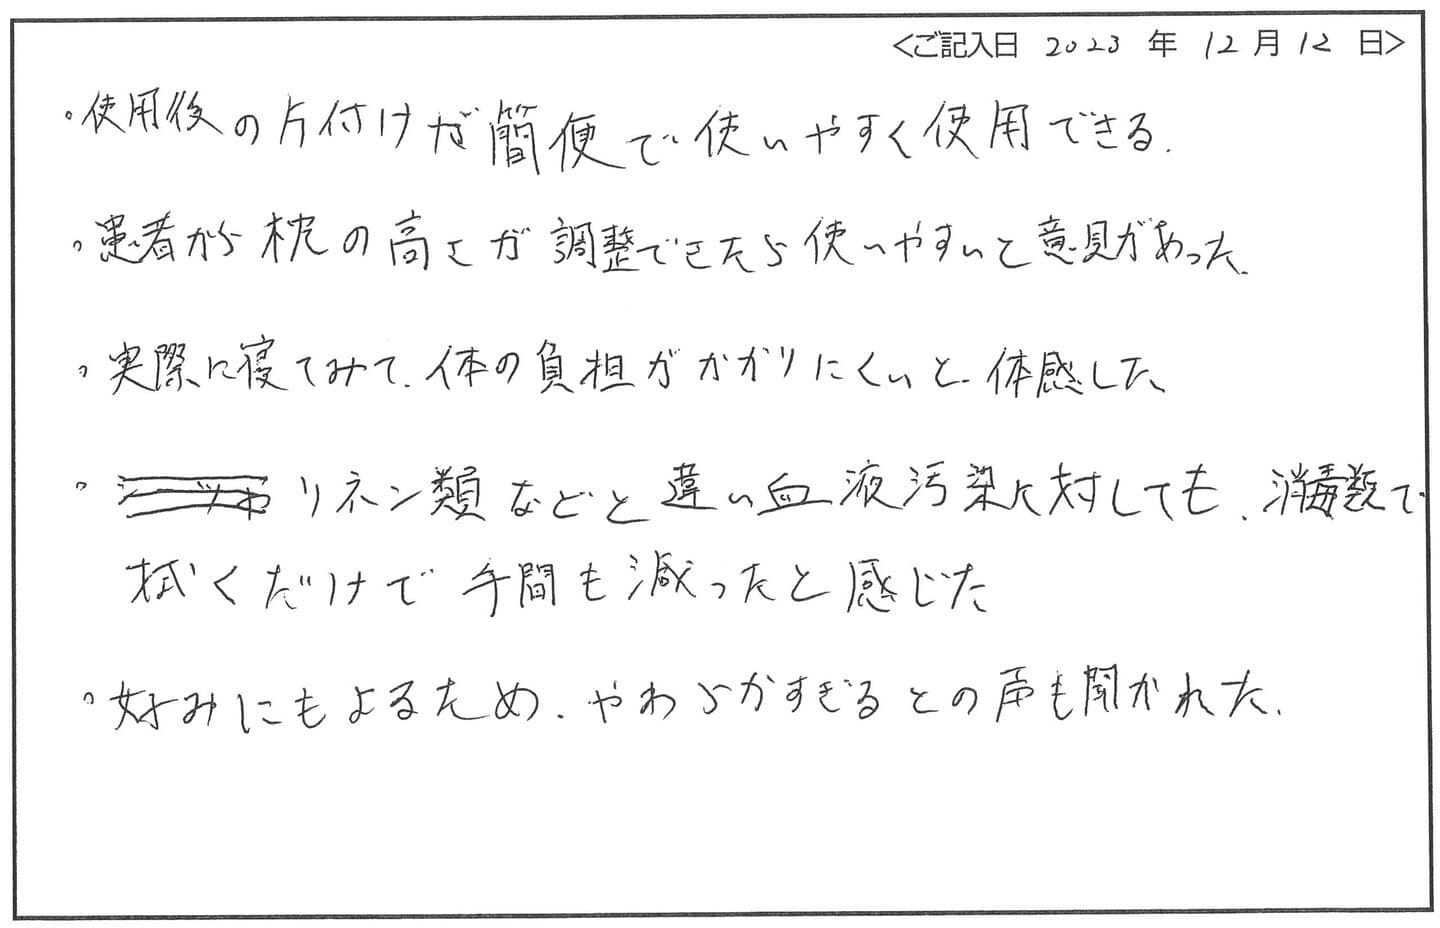 <ご記入日 2023 年 12 月 12 日>
・使用後の片付けが簡便で使いやすく使用できる.
・患者から枕の高さが調整できたら使いやすいと意見があった.
・実際に寝てみて、体の負担がかかりにくいと体感した
・リネン類などと違い血液汚染に対しても、消毒類で
拭くだけで手間も減ったと感じた
・好みにもよるため、やわらかすぎるとの声も聞かれた.